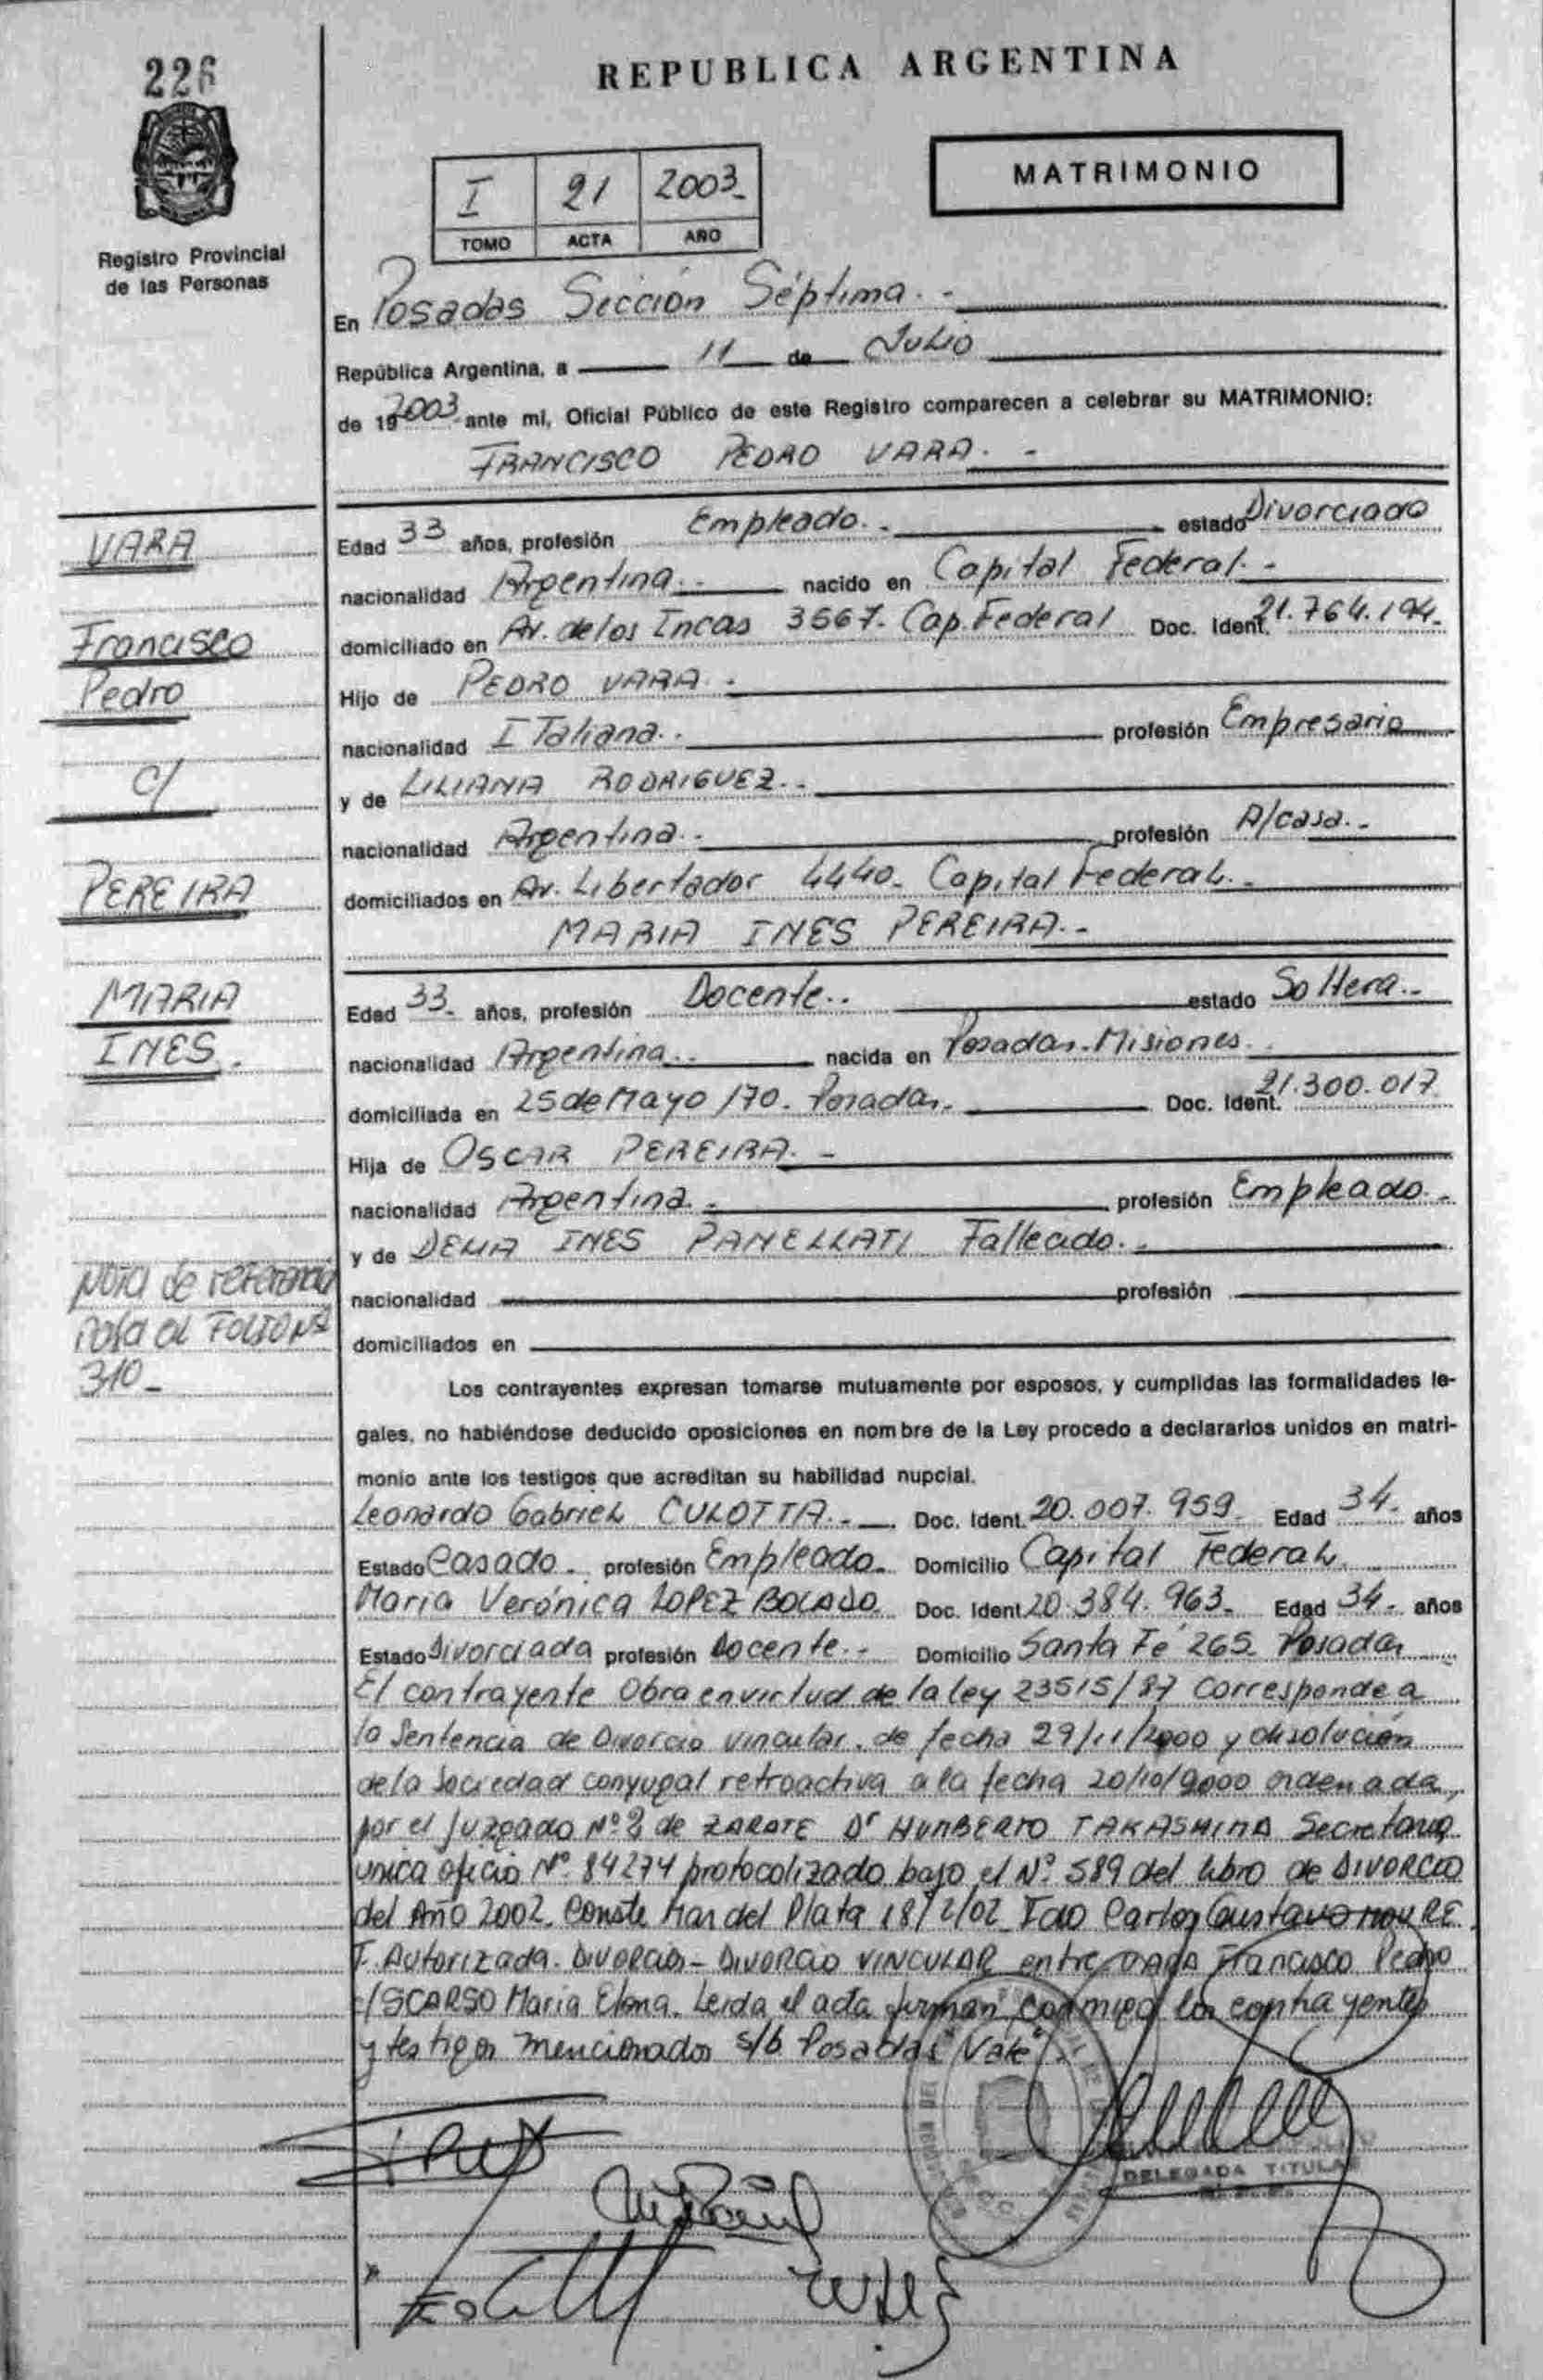 226
Registro Provincial
de las Personas
REPUBLICA ARGENTINA
I 91 2003
TOMO ACTA AÑO
MATRIMONIO
En Posadas Sección Séptima.-
República Argentina, a 11 de Julio
de 19 2003 ante mi, Oficial Público de este Registro comparecen a celebrar su MATRIMONIO:
FRANCISCO PEDRO VARA.-
VARA
Francisco
Pedro
c/
PEREIRA
MARIA
INES.
Edad 33 años, profesión Empleado.- estado Divorciado
nacionalidad Argentina.- nacido en Capital Federal.-
domiciliado en Av. de los Incas 3567. Cap. Federal Doc. Ident. 21.764.194.
Hijo de PEDRO VARA.-
nacionalidad ITaliana.. profesión Empresario
y de LILIANA RODRIGUEZ.-
nacionalidad Argentina.- profesión A/casa.-
domiciliados en Av. Libertador 4440. Capital Federal.-
MARIA INES PEREIRA.-
Edad 33. años, profesión Docente.. estado Soltera.-
nacionalidad Argentina.. nacida en Posadas.Misiones.
domiciliada en 25 de Mayo 170. Posadas. Doc. Ident. 21.300.017
Hija de OSCAR PEREIRA.-
nacionalidad Argentina.- profesión Empleado.-
y de DELIA INES PANELLATI Fallecido.-
nacionalidad profesión
domiciliados en
Nota de referencia
pasa al FOLIO Nº
310-
Los contrayentes expresan tomarse mutuamente por esposos, y cumplidas las formalidades le-
gales, no habiéndose deducido oposiciones en nombre de la Ley procedo a declararlos unidos en matri-
monio ante los testigos que acreditan su habilidad nupcial.
Leonardo Gabriel CULOTTA.- Doc. Ident. 20.007.959. Edad 34. años
Estado Casado. profesión Empleado. Domicilio Capital Federal.
Maria Verónica LOPEZ BOLADO. Doc. Ident 20.384.963. Edad 34. años
Estado Divorciada profesión Docente.- Domicilio Santa Fé 265 Posadas
El contrayente Obra en virtud de la ley 23515/87 Corresponde a
la Sentencia de Divorcio vincular. de fecha 29/11/2000 y disolución
de la Sociedad conyugal retroactiva a la fecha 20/10/2000 ordenada
por el Juzgado Nº 2 de ZARATE Dr HUMBERTO TAKASHIMA Secretaria
unica oficio Nº 84274 protocolizado bajo el Nº 589 del libro de DIVORCIO
del Año 2002. Conste Mar del Plata 18/2/02 Fdo Carlos Gustavo
F. Autorizada. Divorcios- Divorcio VINCULAR entre VARA Francisco Pedro
c/SCARSO Maria Elena. Leida el acta firman conmigo los contrayentes
y testigos mencionados s/b Posadas "Vale".
DELEGADA TITULAR